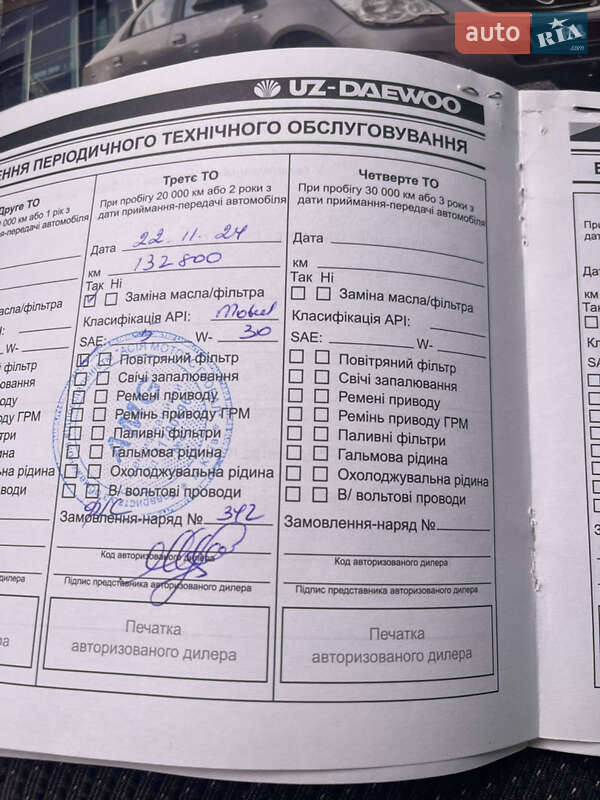 auto RIA .com
UZ-DAEWOO
ЕННЯ ПЕРІОДИЧНОГО ТЕХНІЧНОГО ОБСЛУГОВУВАННЯ
Друге ТО
000 км або 1 рік з
я-передачі автомобіля
масла/фільтра
ія API:
W-
й фільтр
лювання
риводу
воду ГРМ
ьтри
рідина
льна рідина
роводи
ряд №
ого дилера
ізованого дилера
ра
Третє ТО
При пробігу 20 000 км або 2 роки з
дати приймання-передачі автомобіля
Дата 22.11.24
км 132800
Так Ні
Заміна масла/фільтра
Класифікація API:
SAE: 5 W- 30
Повітряний фільтр
Свічі запалювання
Ремені приводу
Ремінь приводу ГРМ
Паливні фільтри
Гальмова рідина
Охолоджувальна рідина
В/ вольтові проводи
Замовлення-наряд № 342
Код авторизованого дилера
Підпис представника авторизованого дилера
Печатка
авторизованого дилера
Четверте ТО
При пробігу 30 000 км або 3 роки з
дати приймання-передачі автомобіля
Дата
км
Так Ні
Заміна масла/фільтра
Класифікація API:
SAE: W-
Повітряний фільтр
Свічі запалювання
Ремені приводу
Ремінь приводу ГРМ
Паливні фільтри
Гальмова рідина
Охолоджувальна рідина
В/ вольтові проводи
Замовлення-наряд №
Код авторизованого дилера
Підпис представника авторизованого дилера
Печатка
авторизованого дилера
При
дати
Дата
км
Так
Кла
SAE